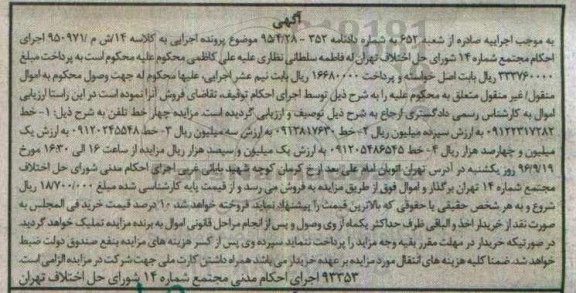 آگهی
به موجب اجراییه صادره از شعبه ۶۵۲ به شماره دادنامه ۳۵۲ - ۹۵/۴/۲۸ موضوع پرونده اجرایی به کلاسه ۱۴/ش م /۹۵۰۹۷۱ اجرای
احکام مجتمع شماره ۱۴ شورای حل اختلاف تهران له فاطمه سلطانی نظاری علیه علی کاظمی محکوم علیه محکوم است به پرداخت مبلغ
۳۳۳۷۶۰۰۰۰ ریال بابت اصل خواسته و پرداخت ۱۶۶۸۰۰۰۰ ریال بابت نیم عشر اجرایی، علیها محکوم له جهت وصول محکوم به اموال
منقول/ غیر منقول متعلق به محکوم علیه را به شرح ذیل توسط اجرای احکام توقیف، تقاضای فروش آنرا نموده است در این راستا ارزیابی
اموال به کارشناس رسمی دادگستری ارجاع به شرح ذیل توصیف و ارزیابی گردیده است. مزایده چهار خط تلفن به شرح ذیل: ۱- خط
۰۹۱۲۲۳۱۷۲۸۲ به ارزش سیزده میلیون ریال ۲- خط ۰۹۱۲۳۸۱۷۶۳۰ به ارزش سه میلیون ریال ۳- خط ۰۹۱۲۰۲۴۵۵۴۸ به ارزش یک
میلیون و چهارصد هزار ریال ۴- خط ۰۹۱۲۰۵۴۸۶۴۵ به ارزش یک میلیون و سیصد هزار ریال مزایده از ساعت ۱۶ الی ۱۶:۳۰ مورخ
۹۶/۹/۱۹ روز یکشنبه در آدرس تهران اتوبان امام علی بعد از خ کرمان کوچه شهید بابائی غربی اجرای احکام مدنی شورای حل اختلاف
مجتمع شماره ۱۴ تهران برگذار و اموال فوق از طریق مزایده به فروش می رسد و از قیمت پایه کارشناسی شده مبلغ ۱۸/۷۰۰/۰۰۰ ریال
شروع و به هر شخص حقیقی یا حقوقی که بالاترین قیمت را پیشنهاد نماید، فروخته خواهد شد، ۱۰ درصد قیمت خرید فی المجلس به
صورت نقد از خریدار اخذ و الباقی ظرف حداکثر یکماه از وی وصول و پس از انجام مراحل قانونی اموال به برنده مزایده تملیک خواهد گردید.
در صورتیکه خریدار در مهلت مقرر بقیه وجه مزایده را پرداخت ننماید سپرده وی پس از کسر هزینه های مزایده بنفع صندوق دولت ضبط
خواهد شد. ضمنا کلیه هزینه های انتقال مورد مزایده بر عهده خریدار می باشد همراه داشتن کارت ملی جهت شرکت در مزایده الزامی است.
۹۳۳۵۳ اجرای احکام مدنی مجتمع شماره ۱۴ شورای حل اختلاف تهران